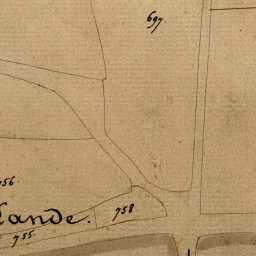 697.
756
Lande.
758
755.